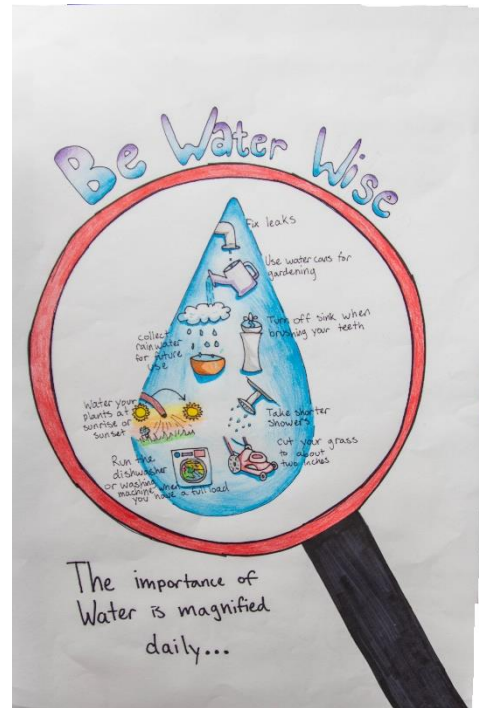 Be Water Wise
Fix leaks
Use water cans for
gardening
Turn off sink when
brushing your teeth
collect
rainwater
for future
use
Water your
plants at
sunrise or
sunset
Take shorter
showers
Cut your grass
to about
two inches
Run the
dishwasher
or washing
machine when
you have a full load
The importance of
Water is magnified
daily...